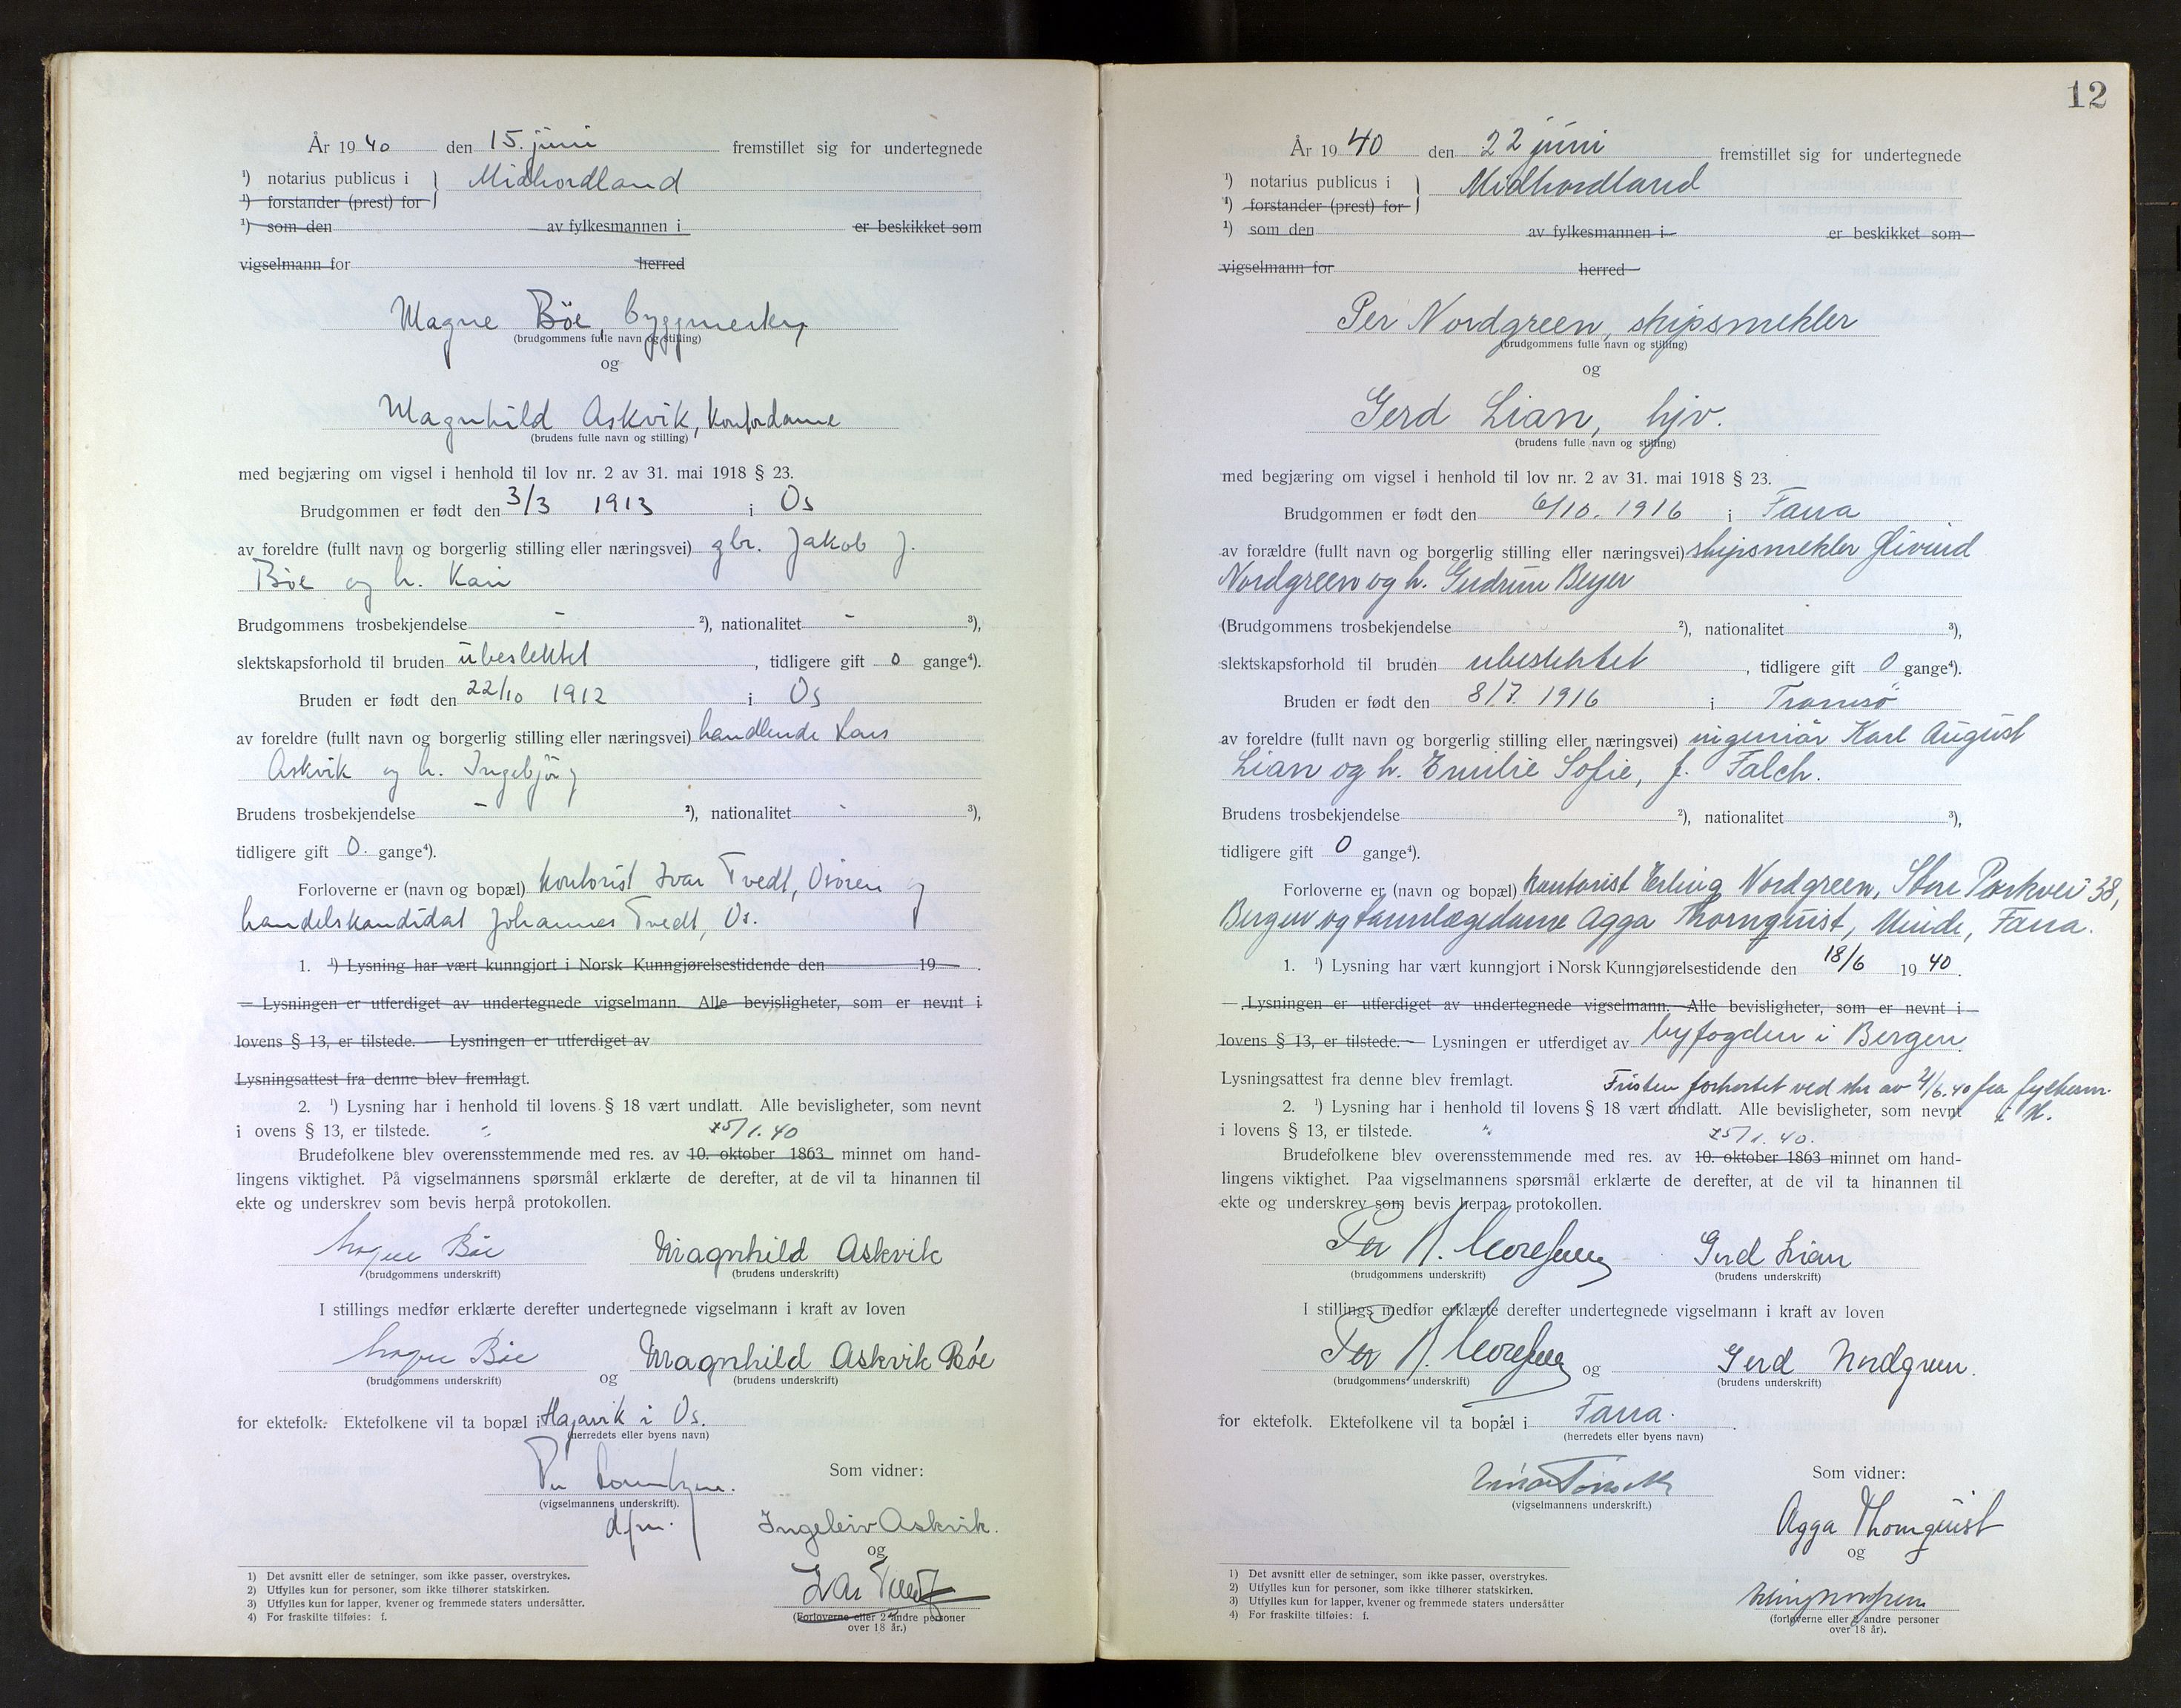 År 1940 den 15. juni fremstillet sig for undertegnede
¹) notarius publicus i } Midhordland
¹) forstander (prest) for
¹) som den av fylkesmannen i er beskikket som
vigselmann for herred
Magne Böe, byggmester
(brudgommens fulle navn og stilling)
og
Magnhild Askvik, kontordame
(brudens fulle navn og stilling)
med begjæring om vigsel i henhold til lov nr. 2 av 31. mai 1918 § 23.
Brudgommen er født den 3/3 1913 i Os
av foreldre (fullt navn og borgerlig stilling eller næringsvei) gbr. Jakob J.
Böe og h. Kari
Brudgommens trosbekjendelse - ²), nationalitet - ³),
slektskapsforhold til bruden ubeslektet, tidligere gift 0 gange⁴).
Bruden er født den 22/10 1912 i Os
av foreldre (fullt navn og borgerlig stilling eller næringsvei) handlende Lars
Askvik og h. Ingebjörg
Brudens trosbekjendelse - ²), nationalitet - ³),
tidligere gift 0. gange⁴).
Forloverne er (navn og bopæl) kontorist Ivar Tvedt, Osören og
handelskandidat Johannes Tvedt, Os.
1. ¹) Lysning har vært kunngjort i Norsk Kunngjørelsestidende den 19 .
— Lysningen er utferdiget av undertegnede vigselmann. Alle bevisligheter, som er nevnt i
lovens § 13, er tilstede. — Lysningen er utferdiget av
Lysningsattest fra denne blev fremlagt.
2. ¹) Lysning har i henhold til lovens § 18 vært undlatt. Alle bevisligheter, som nevnt
i ovens § 13, er tilstede. 25/1.40
Brudefolkene blev overensstemmende med res. av 10. oktober 1863 minnet om hand-
lingens viktighet. På vigselmannens spørsmål erklærte de derefter, at de vil ta hinannen til
ekte og underskrev som bevis herpå protokollen.
Magne Böe Magnhild Askvik
(brudgommens underskrift) (brudens underskrift)
I stillings medfør erklærte derefter undertegnede vigselmann i kraft av loven
Magne Böe og Magnhild Askvik Böe
(brudgommens underskrift) (brudens underskrift)
for ektefolk. Ektefolkene vil ta bopæl i Hagavik i Os.
(herredets eller byens navn)
Som vidner:
(vigselmannens underskrift).
dfm.
Ingeleiv Askvik.
og
Ivar Tvedt
(Forloverne eller 2 andre personer
over 18 år.)
1) Det avsnitt eller de setninger, som ikke passer, overstrykes.
2) Utfylles kun for personer, som ikke tilhører statskirken.
3) Utfylles kun for lapper, kvener og fremmede staters undersåtter.
4) For fraskilte tilføies: f.
12
År 1940 den 22 juni fremstillet sig for undertegnede
¹) notarius publicus i } Midhordland
¹) forstander (prest) for
¹) som den av fylkesmannen i er beskikket som
vigselmann for herred
Per Nordgreen, skipsmekler
(brudgommens fulle navn og stilling)
og
Gerd Lian, hjv.
(brudens fulle navn og stilling)
med begjæring om vigsel i henhold til lov nr. 2 av 31. mai 1918 § 23.
Brudgommen er født den 6/10. 1916 i Fana
av forældre (fullt navn og borgerlig stilling eller næringsvei) skipsmekler Eivind
Nordgreen og h. Gudrun Beyer
(Brudgommens trosbekjendelse ²), nationalitet ³),
slektskapsforhold til bruden ubeslektet, tidligere gift 0 gange⁴).
Bruden er født den 8/7. 1916 i Tromsö
av foreldre (fullt navn og borgerlig stilling eller næringsvei) ingeniör Karl August
Lian og h. Emilie Sofie, f. Falch.
Brudens trosbekjendelse ²), nationalitet ³),
tidligere gift 0 gange⁴).
Forloverne er (navn og bopæl) kontorist Erling Nordgreen, Store Parkvei 38,
Bergen og tannlægedame Agga Thornquist, Minde, Fana.
1. ¹) Lysning har vært kunngjort i Norsk Kunngjørelsestidende den 18/6 1940.
— Lysningen er utferdiget av undertegnede vigselmann. Alle bevisligheter, som er nevnt i
lovens § 13, er tilstede. — Lysningen er utferdiget av byfogden i Bergen.
Lysningsattest fra denne blev fremlagt. Fristen forkortet ved skr av 21/6.40 fra fylkesm.
i H.
2. ¹) Lysning har i henhold til lovens § 18 vært undlatt. Alle bevisligheter, som nevnt
i lovens § 13, er tilstede. 25/1.40.
Brudefolkene blev overensstemmende med res. av 10. oktober 1863 minnet om hand-
lingens viktighet. Paa vigselmannens spørsmål erklærte de derefter, at de vil ta hinannen til
ekte og underskrev som bevis herpaa protokollen.
Per Nordgreen Gerd Lian
(brudgommens underskrift) (brudens underskrift)
I stillings medfør erklærte derefter undertegnede vigselmann i kraft av loven
Per Nordgreen og Gerd Nordgreen.
(brudgommens underskrift) (brudens underskrift)
for ektefolk. Ektefolkene vil ta bopæl i Fana.
(herredets eller byens navn)
Som vidner:
(vigselmannens underskrift.)
Agga Thornquist
og
Erling Nordgreen
(forloverne eller 2 andre personer
over 18 år).
1) Det avsnitt eller de setninger, som ikke passer, overstrykes.
2) Utfylles kun for personer, som ikke tilhører statskirken.
3) Utfylles kun for lapper, kvener og fremmede staters undersåtter
4) For fraskilte tilføies: f.